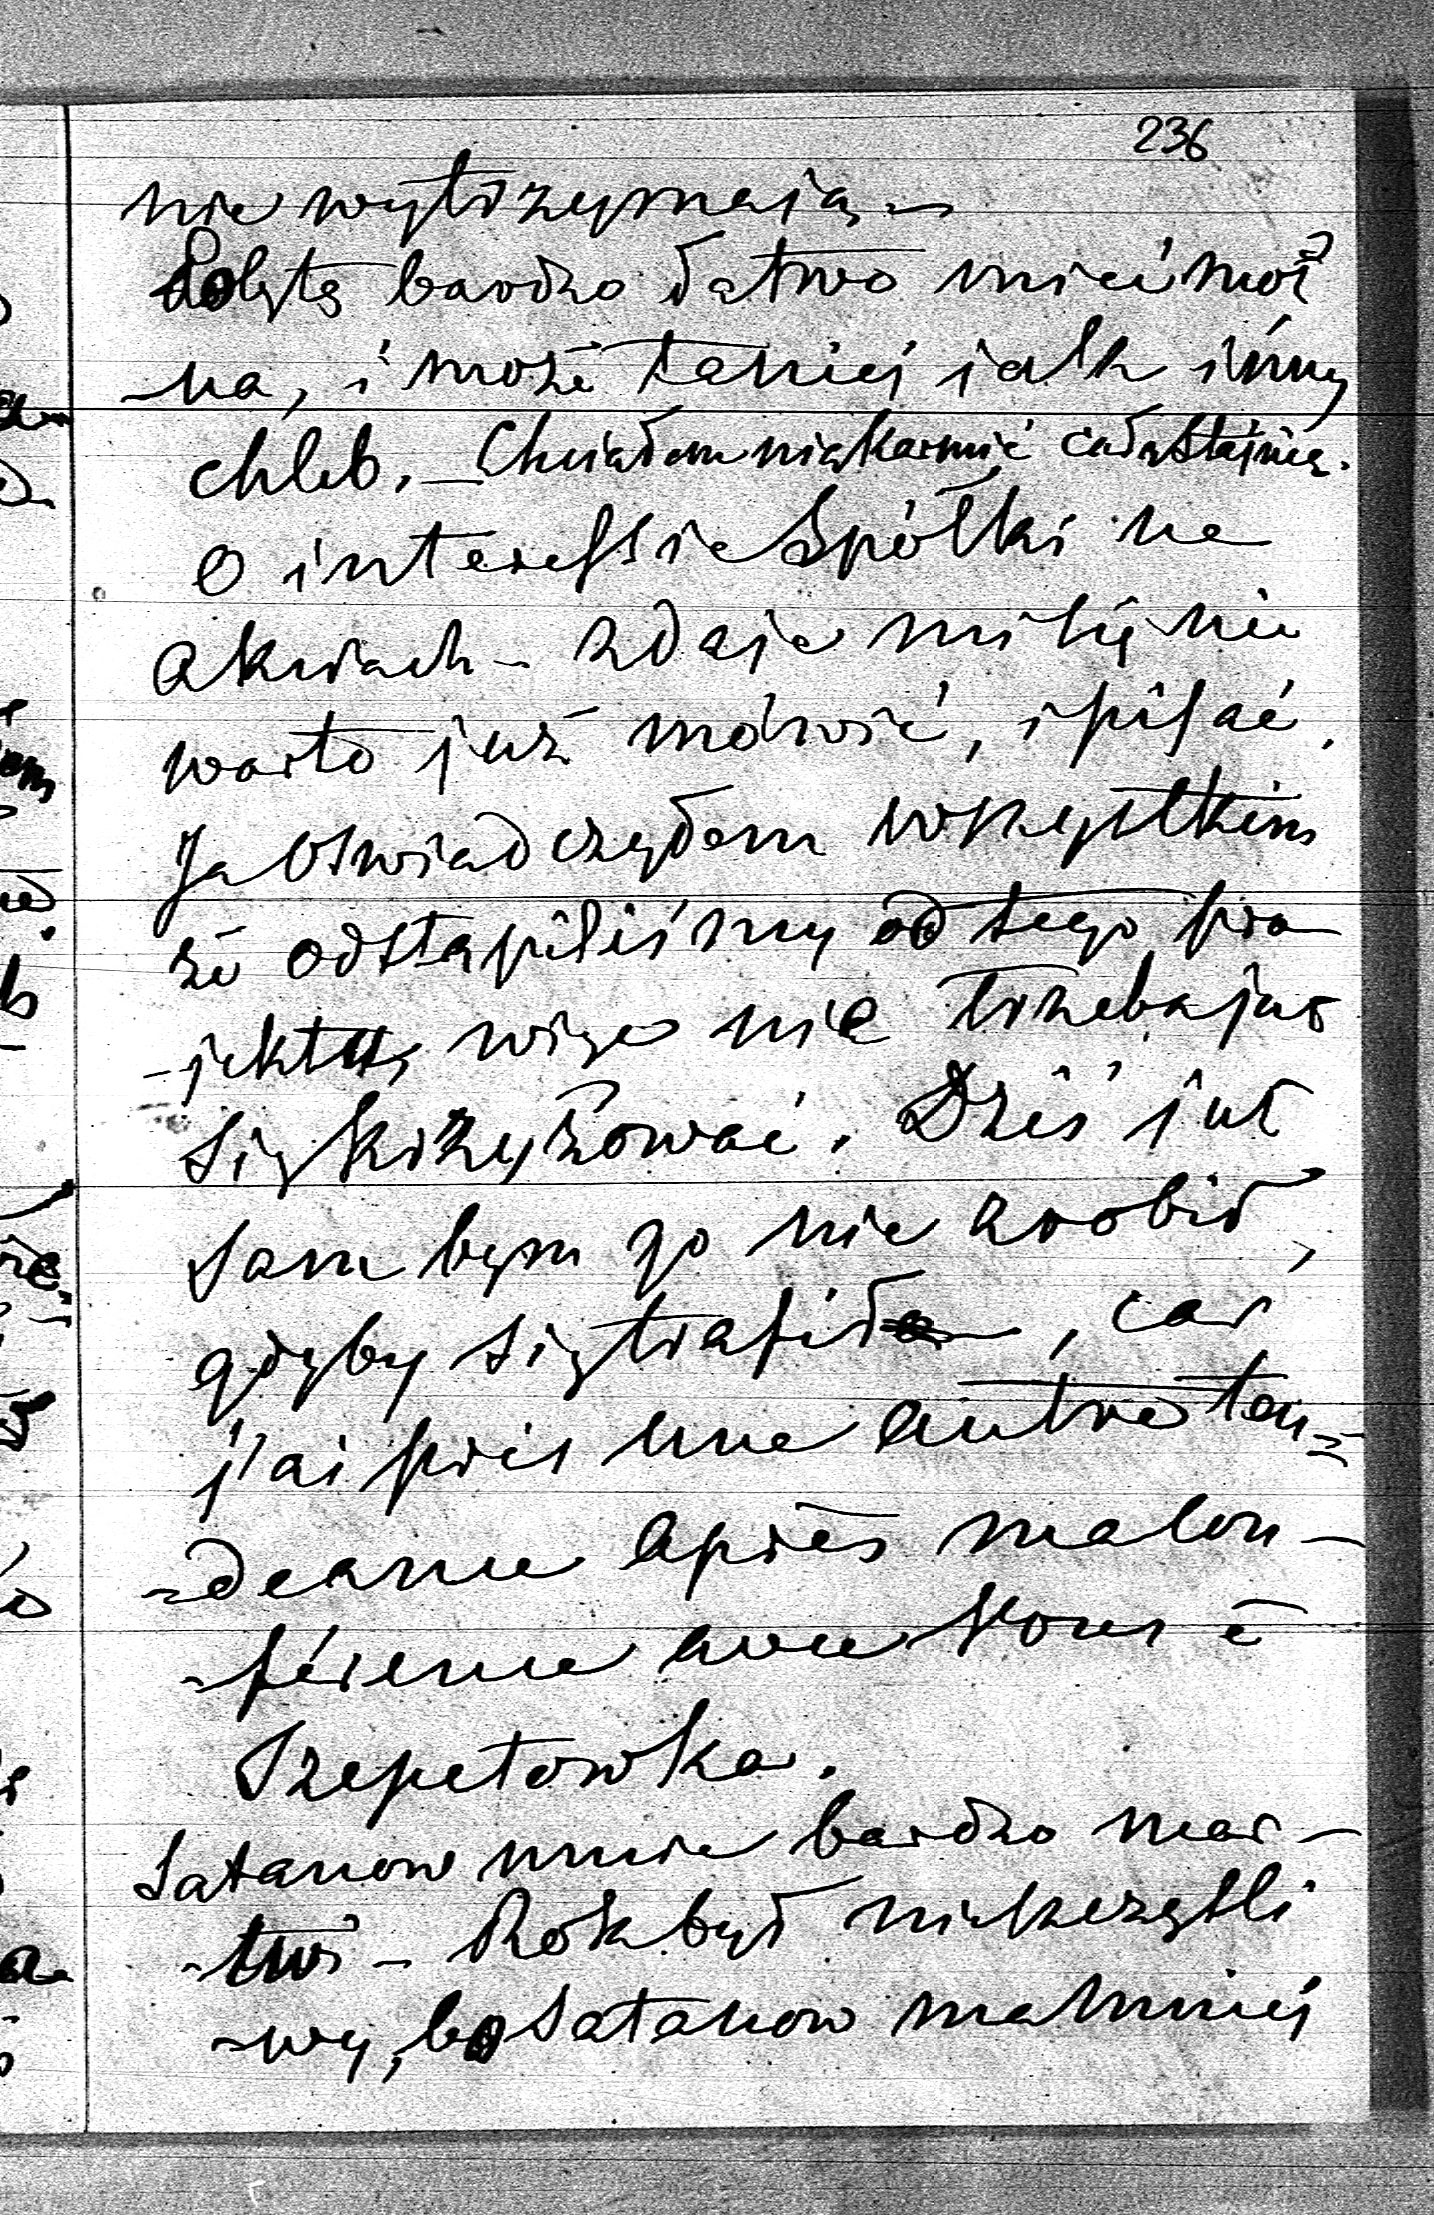 236
nie wytrzymają –
bardzo łatwo mieć moż
-na, i może taniej jalk inny
chleb. – Chciałem nią karmić całą stajnię.
O interessie Spółki na
akciach – zdaje mi się nie
warto już mówić, i pisać.
Ja oswiadczyłem wszystkim
że odstąpiliśmy od tego pro
-jektu, więc nie trzeba już
się krzyżować. Dziś już
sam bym go nie zrobił,
gdyby się trafił, car
j'ai pris une autre ten=
-dence après ma con-
-férence avec Vous à
Szepetowka.
Satanow mnie bardzo mar-
-twi – Rok był nieszczęśli
-wy, bo Satanow ma mniej